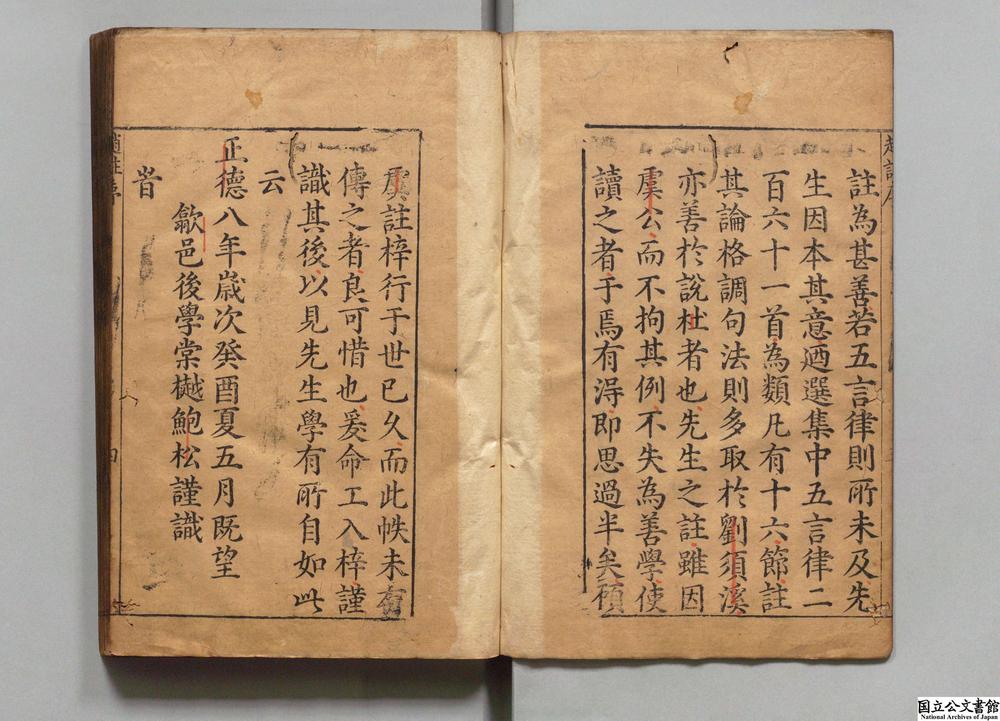 註為甚善若五言律則所未及先
生因本其意迺選集中五言律二
百六十一首為類凡有十六節註
其論格調句法則多取於劉須溪
亦善於說杜者也先生之註雖因
虞公而不拘其例不失為善學使
讀之者于焉有得即思過半矣顧
虞註梓行于世已久而此帙未有
傳之者良可惜也爰命工入梓謹
識其後以見先生學有所自如此
云
正德八年歲次癸酉夏五月既望
歙邑後學棠樾鮑松謹識
国立公文書館
National Archives of Japan